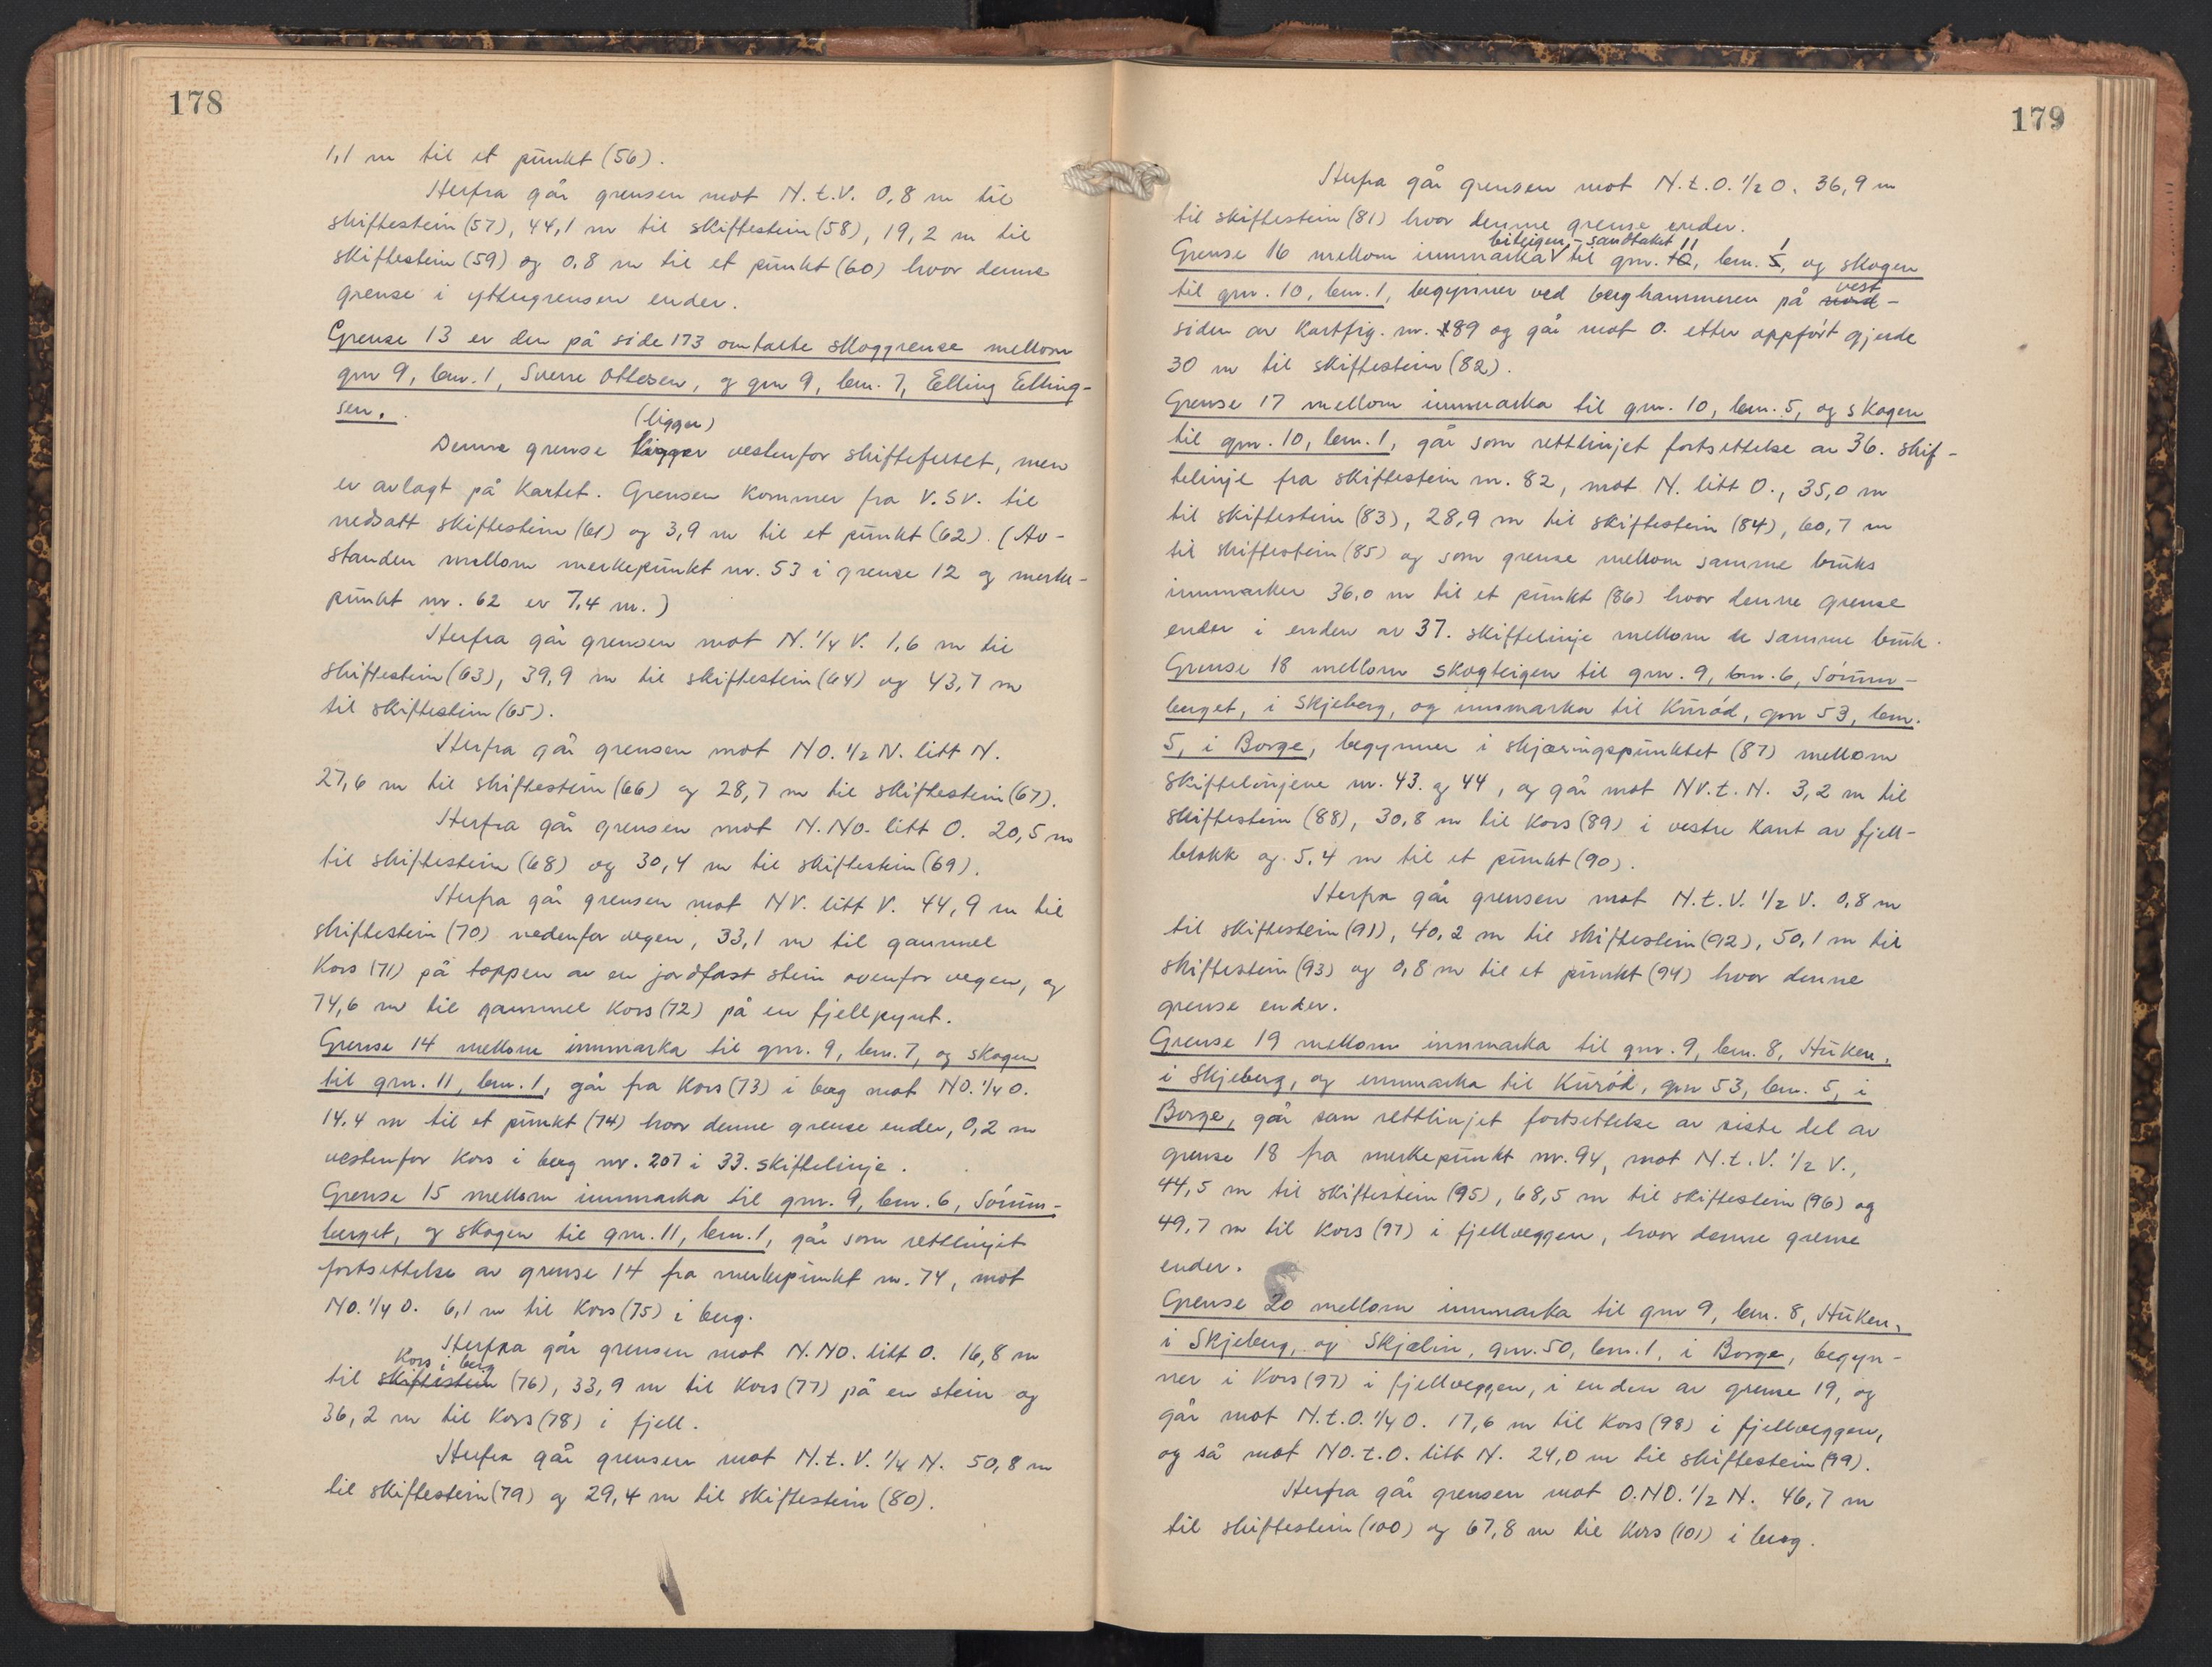 178
1,1 m til et punkt (56).
Herfra går grensen mot N.t.V. 0,8 m til
skiftestein (57), 44,1 m til skiftestein (58), 19,2 m til
skiftestein (59) og 0,8 m til et punkt (60) hvor denne
grense i yttergrensen ender.
Grense 13 er den på side 173 omtalte skoggrense mellom
gnr 9, bnr. 1, Sverre Ottesen, og gnr 9, bnr. 7, Elling Elling-
sen.
(ligger)
Denne grense ligger vestenfor skiftefeltet, men
er avlagt på kartet. Grensen kommer fra V.SV. til
nedsatt skiftestein (61) og 3,9 m til et punkt (62). (Av-
standen mellom merkepunkt nr. 53 i grense 12 og merke-
punkt nr. 62 er 7,4 m.)
Herfra går grensen mot N. 1/4 V. 1,6 m til
skiftestein (63), 39,9 m til skiftestein (64) og 43,7 m
til skiftestein (65).
Herfra går grensen mot NO. 1/2 N. litt N.
27,6 m til skiftestein (66) og 28,7 m til skiftestein (67).
Herfra går grensen mot N.NO. litt O. 20,5 m
til skiftestein (68) og 30,4 m til skiftestein (69).
Herfra går grensen mot NV. litt V. 44,9 m til
skiftestein (70) nedenfor vegen, 33,1 m til gammel
kors (71) på toppen av en jordfast stein ovenfor vegen, og
74,6 m til gammel kors (72) på en fjellpynt.
Grense 14 mellom innmarka til gnr. 9, bnr. 7, og skogen
til gnr. 11, bnr. 1, går fra kors (73) i berg mot NO. 1/4 O.
14,4 m til et punkt (74) hvor denne grense ender, 0,2 m
vestenfor kors i berg nr. 207 i 33. skiftelinje.
Grense 15 mellom innmarka til gnr. 9, bnr. 6, Sórum-
berget, og skogen til gnr. 11, bnr. 1, går som rettlinjet
fortsettelse av grense 14 fra merkepunkt nr. 74, mot
NO. 1/4 O. 6,1 m til kors (75) i berg.
Herfra går grensen mot N.NO. litt O. 16,8 m
kors i berg
til skiftestein (76), 33,9 m til kors (77) på en stein og
36,2 m til kors (78) i fjell.
Herfra går grensen mot N.t.V. 1/4 N. 50,8 m
til skiftestein (79) og 29,4 m til skiftestein (80).
179
Herfra går grensen mot N.t.O. 1/2 O. 36,9 m
til skiftestein (81) hvor denne grense ender.
biteigen - sandtaket 11 1
Grense 16 mellom innmarka V til gnr. 10, bnr. 5, og skogen
til gnr. 10, bnr. 1, begynner ved berghammeren på nord-
vest
siden av kartfig. nr. 189 og går mot O. etter oppfórt gjerde
30 m til skiftestein (82).
Grense 17 mellom innmarka til gnr. 10, bnr. 5, og skogen
til gnr. 10, bnr. 1, går som rettlinjet fortsettelse av 36. skif-
telinje fra skiftestein nr. 82, mot N. litt O., 35,0 m
til skiftestein (83), 28,9 m til skiftestein (84), 60,7 m
til skiftestein (85) og som grense mellom samme bruks
innmarker 36,0 m til et punkt (86) hvor denne grense
ender i enden av 37. skiftelinje mellom de samme bruk.
Grense 18 mellom skogteigen til gnr. 9, bnr. 6, Sórum-
berget, i Skjeberg, og innmarka til Kuród, gnr 53, bnr.
5, i Borge, begynner i skjæringspunktet (87) mellom
skiftelinjene nr. 43. og 44, og går mot NV.t.N. 3,2 m til
skiftestein (88), 30,8 m til kors (89) i vestre kant av fjell-
blokk og 5,4 m til et punkt (90).
Herfra går grensen mot N.t.V. 1/2 V. 0,8 m
til skiftestein (91), 40,2 m til skiftestein (92), 50,1 m til
skiftestein (93) og 0,8 m til et punkt (94) hvor denne
grense ender.
Grense 19 mellom innmarka til gnr. 9, bnr. 8, Huken,
i Skjeberg, og innmarka til Kuród, gnr 53, bnr. 5, i
Borge, går som rettlinjet fortsettelse av siste del av
grense 18 fra merkepunkt nr. 94, mot N.t.V. 1/2 V.,
44,5 m til skiftestein (95), 68,5 m til skiftestein (96) og
49,7 m til kors (97) i fjellveggen, hvor denne grense
ender.
Grense 20 mellom innmarka til gnr 9, bnr. 8, Huken,
i Skjeberg, og Skjælin, gnr. 50, bnr. 1, i Borge, begyn-
ner i kors (97) i fjellveggen, i enden av grense 19, og
går mot N.t.O. 1/4 O. 17,6 m til kors (98) i fjellveggen,
og så mot NO.t.O. litt N. 24,0 m til skiftestein (99).
Herfra går grensen mot O.NO. 1/2 N. 46,7 m
til skiftestein (100) og 67,8 m til kors (101) i berg.